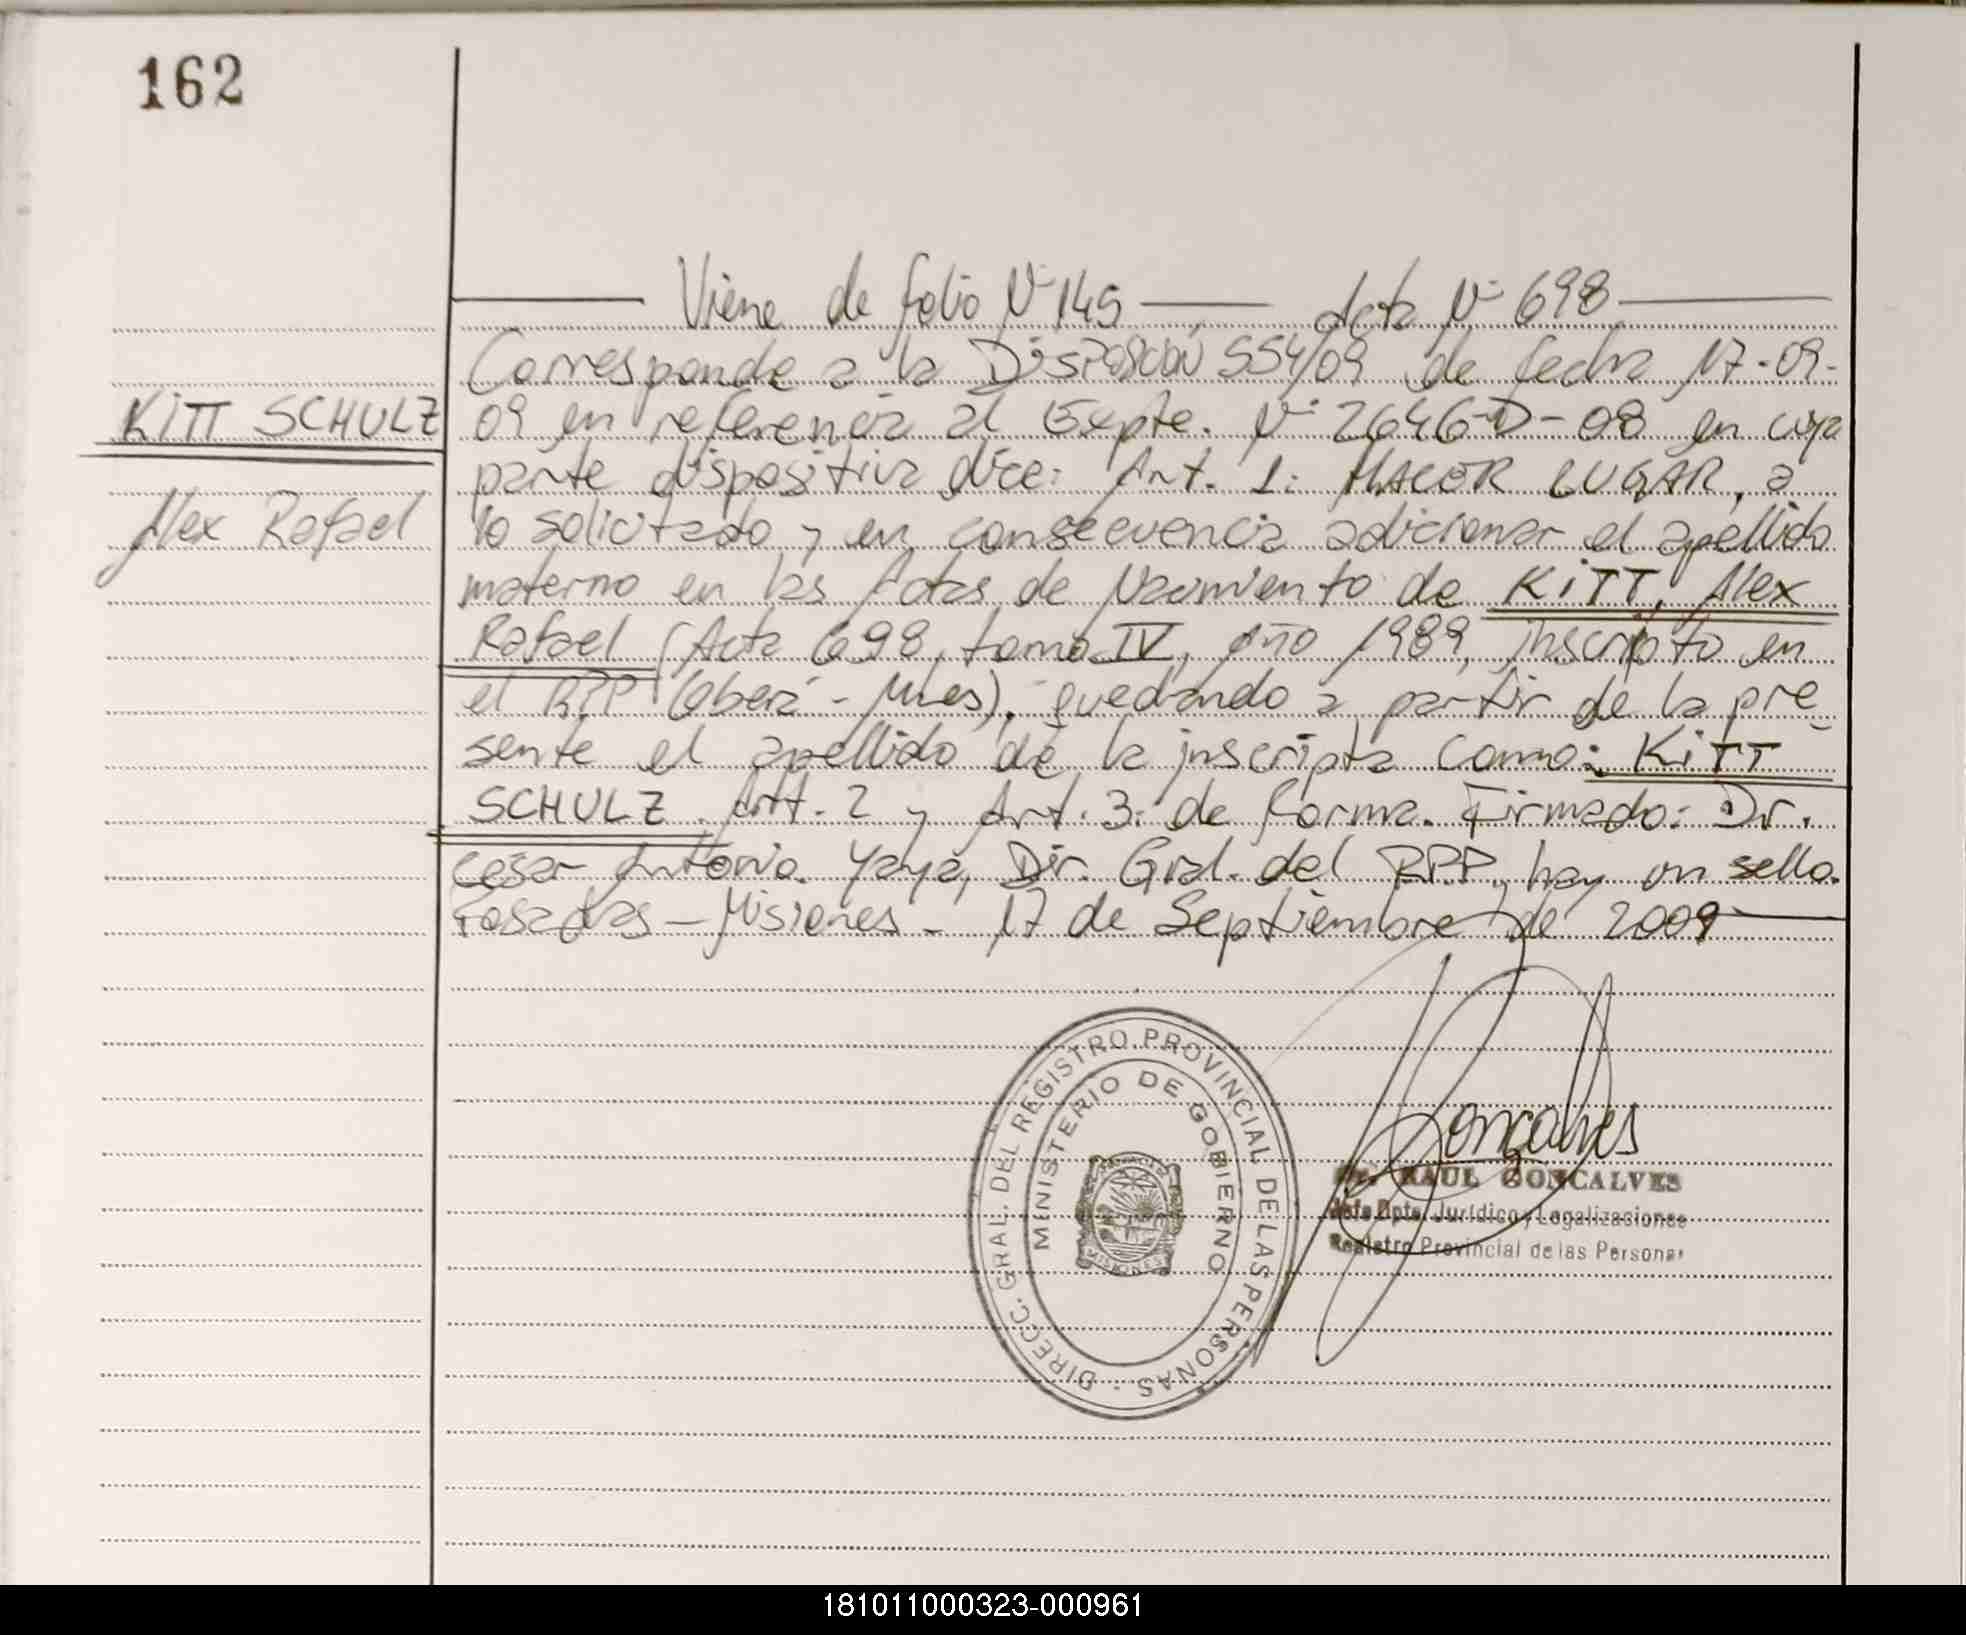 162
Viene de folio Nº 145 Acta Nº 698
Corresponde a la DISPOSICIÓN 554/09 de fecha 17-09-
KITT SCHULZ
09 en referencia al Expte. Nº 2646-D-08 en cuya
parte dispositiva dice: Art. 1: HACER LUGAR, a
Alex Rafael
lo solicitado y en consecuencia adicionar el apellido
materno en las Actas de Nacimiento de KITT, Alex
Rafael (Acta 698, tomo IV, año 1989, inscripto en
el RPP (Oberá - Mnes), quedando a partir de la pre-
sente el apellido de la inscripta como: KITT
SCHULZ. Art. 2 y Art. 3: de forma. Firmado: Dr.
Cesar Antonio Yaya, Dir. Gral. del RPP, hay un sello.
Posadas - Misiones - 17 de Septiembre de 2009
DIRECC. GRAL. DEL REGISTRO PROVINCIAL DE LAS PERSONAS -
MINISTERIO DE GOBIERNO
MISIONES
Goncalves
Dr. RAUL GONCALVES
Jefe Dpto. Jurídico y Legalizaciones
Registro Provincial de las Personas
181011000323-000961